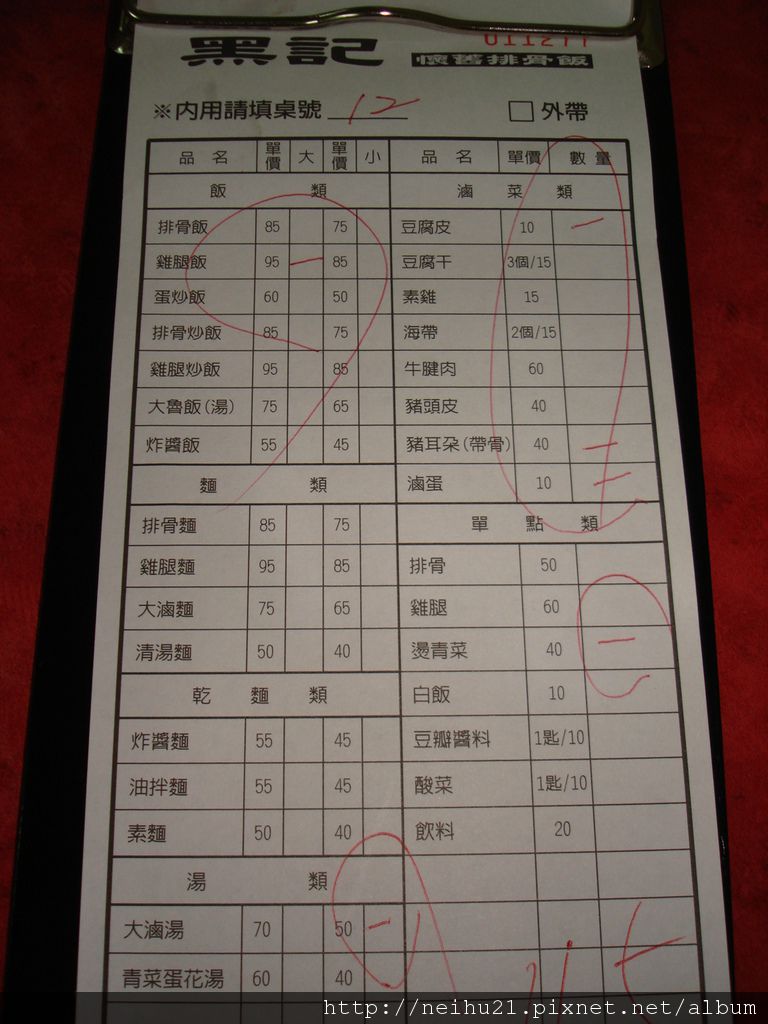 黑記 懷舊排骨飯 011211
※內用請填桌號 12 □外帶
品名 單價 大 單價 小 品名 單價 數量
飯類 滷菜類
排骨飯 85 75 豆腐皮 10 一
雞腿飯 95 一 85 豆腐干 3個/15
蛋炒飯 60 50 素雞 15
排骨炒飯 85 75 海帶 2個/15
雞腿炒飯 95 85 牛腱肉 60
大魯飯(湯) 75 65 豬頭皮 40
炸醬飯 55 45 豬耳朵(帶骨) 40 一
麵類 滷蛋 10 二
排骨麵 85 75 單點類
雞腿麵 95 85 排骨 50
大滷麵 75 65 雞腿 60
清湯麵 50 40 燙青菜 40 一
乾麵類 白飯 10
炸醬麵 55 45 豆瓣醬料 1匙/10
油拌麵 55 45 酸菜 1匙/10
素麵 50 40 飲料 20
湯類
大滷湯 70 50 一
青菜蛋花湯 60 40
http://neihu21.pixnet.net/album